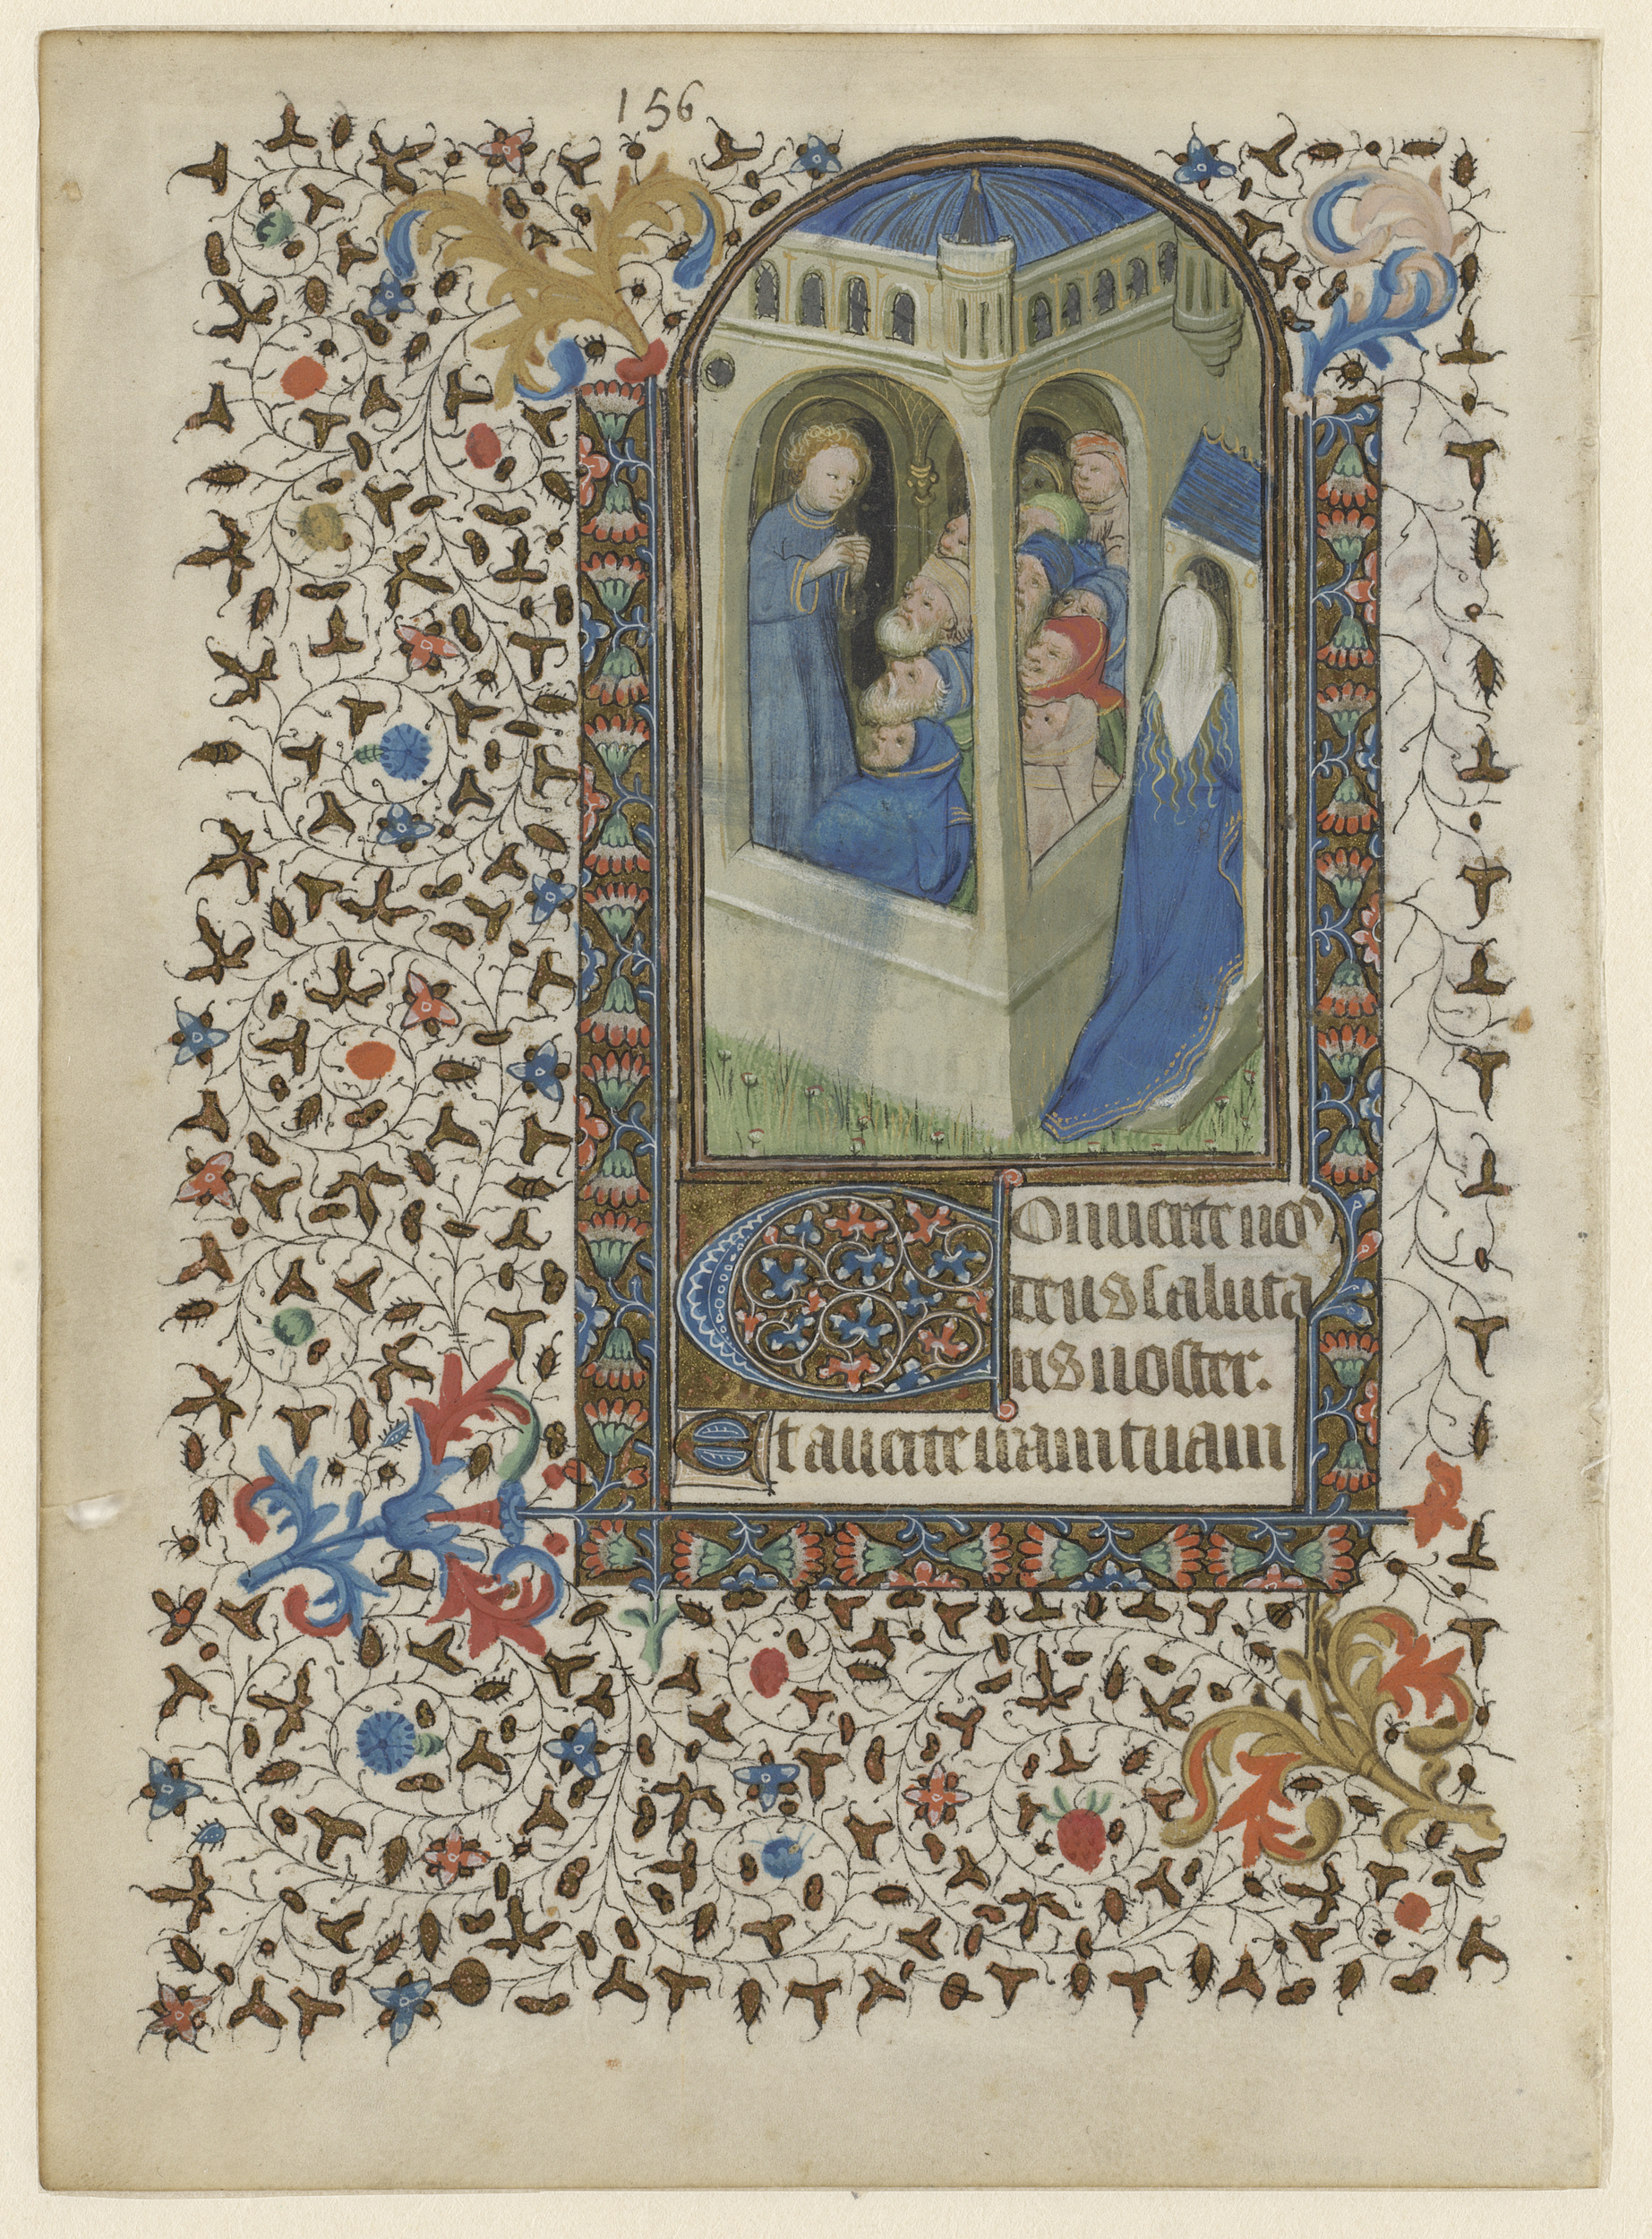 156
COnuerte nos
deus saluta
ris noster.
Et auerte iram tuam